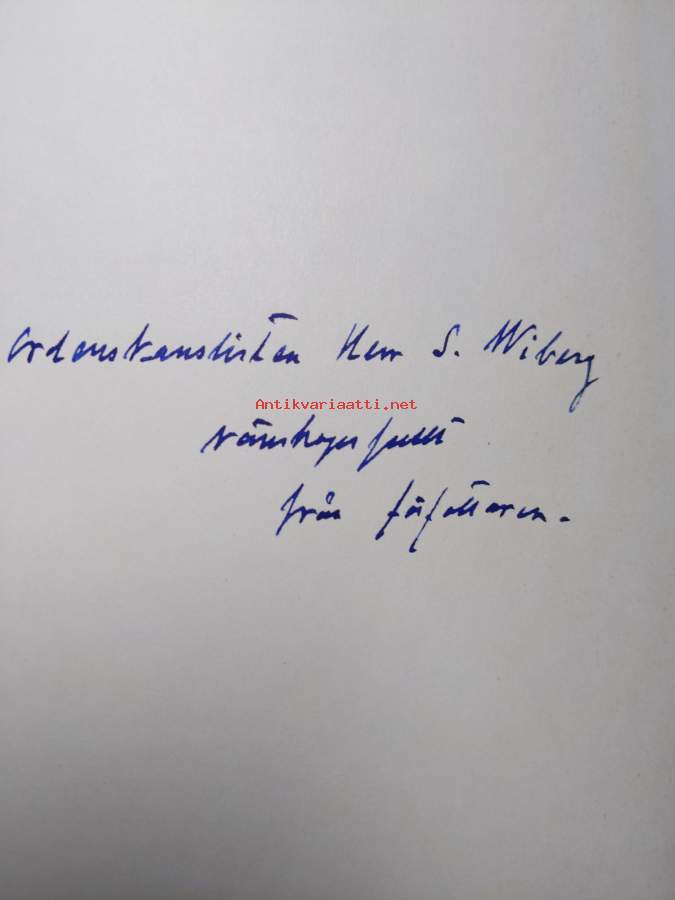 Ordenskanslisten Herr S. Wiberg
Antikvariaatti.net
vänskapsfullt
från författaren.